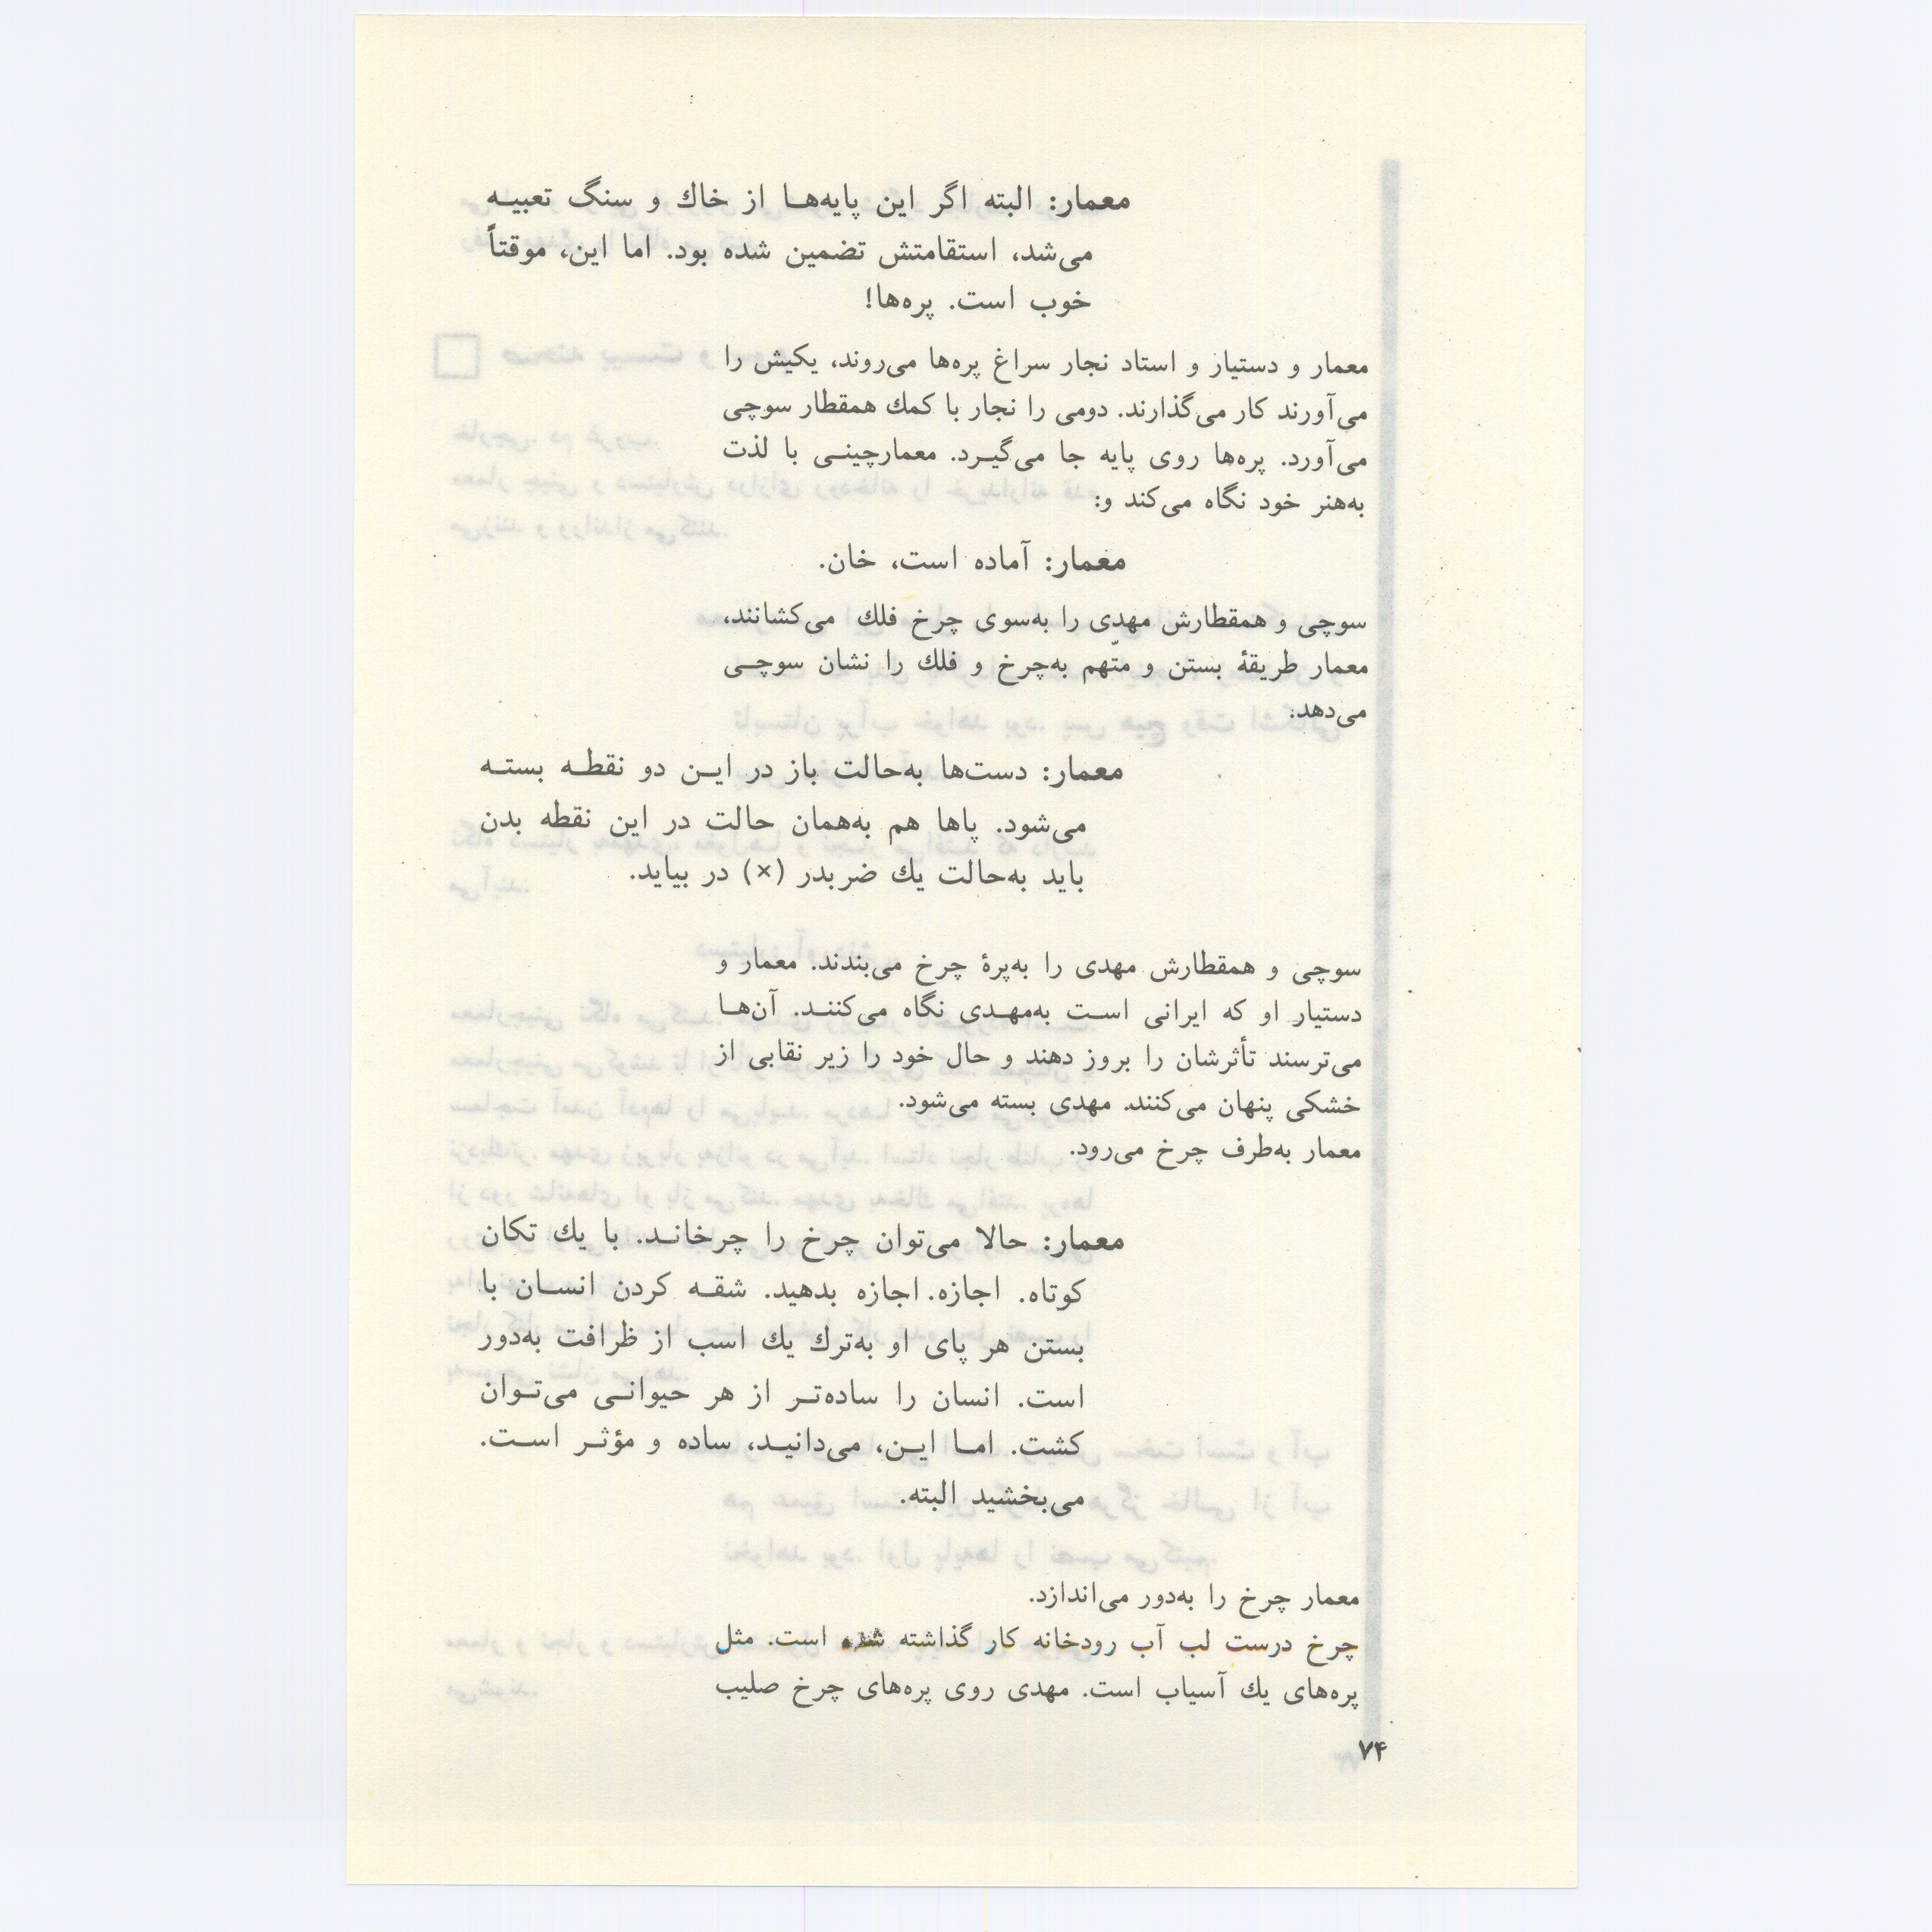 معمار: البته اگر این پایه‌هـا از خاك و سنگ تعبیـه
می‌شد، استقامتش تضمین شده بود. اما این، موقتاً
خوب است. پره‌ها!
معمار و دستیار و استاد نجار سراغ پره‌ها می‌روند، یکیش را
می‌آورند کار می‌گذارند. دومی را نجار با کمك همقطار سوچی
می‌آورد. پره‌ها روی پایه جا می‌گیـرد. معمارچینـی با لذت
به‌هنر خود نگاه می‌کند و:
معمار: آماده است، خان.
سوچی و همقطارش مهدی را به‌سوی چرخ فلك می‌کشانند،
معمار طریقهٔ بستن و متّهم به‌چرخ و فلك را نشان سوچـی
می‌دهد:
معمار: دست‌ها به‌حالت باز در ایـن دو نقطـه بستـه
می‌شود. پاها هم به‌همان حالت در این نقطه بدن
باید به‌حالت یك ضربدر (×) در بیاید.
سوچی و همقطارش مهدی را به‌پرهٔ چرخ می‌بندند. معمار و
دستیار او که ایرانی اسـت به‌مهـدی نگاه می‌کننـد. آن‌هـا
می‌ترسند تأثرشان را بروز دهند و حال خود را زیر نقابی از
خشکی پنهان می‌کنند. مهدی بسته می‌شود.
معمار به‌طرف چرخ می‌رود.
معمار: حالا می‌توان چرخ را چرخانـد. با یك تکان
کوتاه. اجازه. اجازه بدهید. شقـه کردن انسـان با
بستن هر پای او به‌ترك یك اسب از ظرافت به‌دور
است. انسان را ساده‌تـر از هر حیوانـی می‌تـوان
کشت. امـا ایـن، می‌دانیـد، ساده و مؤثـر اسـت.
می‌بخشید البته.
معمار چرخ را به‌دور می‌اندازد.
چرخ درست لب آب رودخانه کار گذاشته شده است. مثل
پره‌های یك آسیاب است. مهدی روی پره‌های چرخ صلیب
۷۴